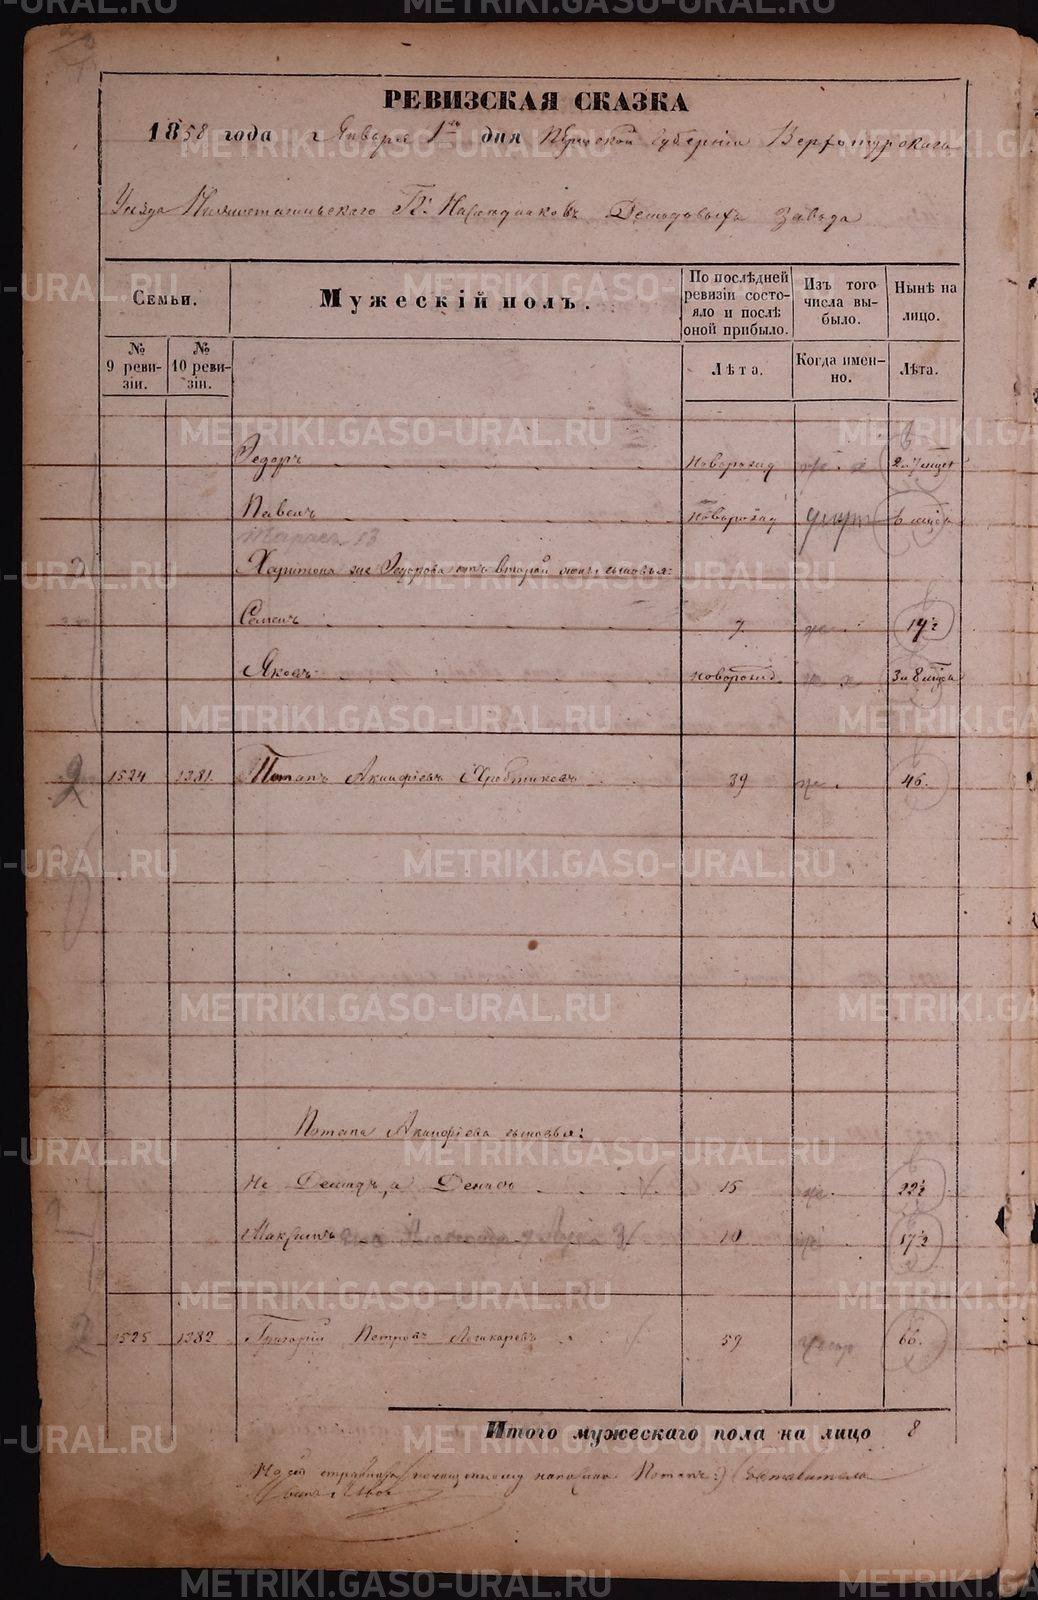 РЕВИЗСКАЯ СКАЗКА
1858 года Января 1го дня Пермской Губерніи Верхотурскаго
Уѣзда Нижнетагильскаго Гг. Наслѣдниковъ Демидовыхъ завода
Семьи.
Мужескій полъ.
По послѣдней ревизіи состояло и послѣ оной прибыло.
Изъ того числа выбыло.
Нынѣ на лицо.
№ 9 ревизіи.
№ 10 ревизіи.
Лѣта.
Когда именно.
Лѣта.
Ѳедоръ новорожд 2 и 7 мцѣ
Павелъ новорожд 6 мцѣ
Харитона же Ѳедорова отъ второй жены сыновья:
Семенъ 7 14½
Яковъ новорожд 3 и 8 мцѣ
1524 1381 Потапъ Акинфіевъ 39 46.
Потапа Акинфіева сыновья:
Не Демидъ, а Денисъ 15 22½
Максимъ 10 17½
1525 1382 Григорій Петровъ 59 66.
Итого мужескаго пола на лицо 8
На сей страницѣ по чищенному написано Потапъ:)
METRIKI.GASO-URAL.RU